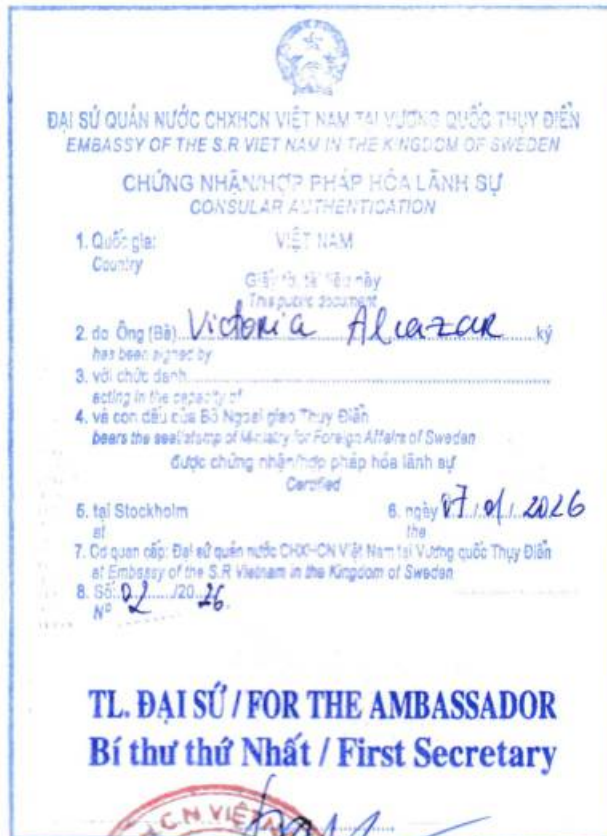 ĐẠI SỨ QUÁN NƯỚC CHXHCN VIỆT NAM TẠI VƯƠNG QUỐC THỤY ĐIỂN
EMBASSY OF THE S.R VIET NAM IN THE KINGDOM OF SWEDEN
CHỨNG NHẬN/HỢP PHÁP HÓA LÃNH SỰ
CONSULAR AUTHENTICATION
1. Quốc gia: VIỆT NAM
Country
Giấy tờ, tài liệu này
This public document
2. do Ông (Bà) Victoria Alcazar ký
has been signed by
3. với chức danh
acting in the capacity of
4. và con dấu của Bộ Ngoại giao Thụy Điển
bears the seal/stamp of Ministry for Foreign Affairs of Sweden
được chứng nhận/hợp pháp hóa lãnh sự
Certified
5. tại Stockholm 6. ngày / 2026
at the
7. Cơ quan cấp: Đại sứ quán nước CHXHCN Việt Nam tại Vương quốc Thụy Điển
at Embassy of the S.R Vietnam in the Kingdom of Sweden
8. Số: 02 /20 26.
Nº
TL. ĐẠI SỨ / FOR THE AMBASSADOR
Bí thư thứ Nhất / First Secretary